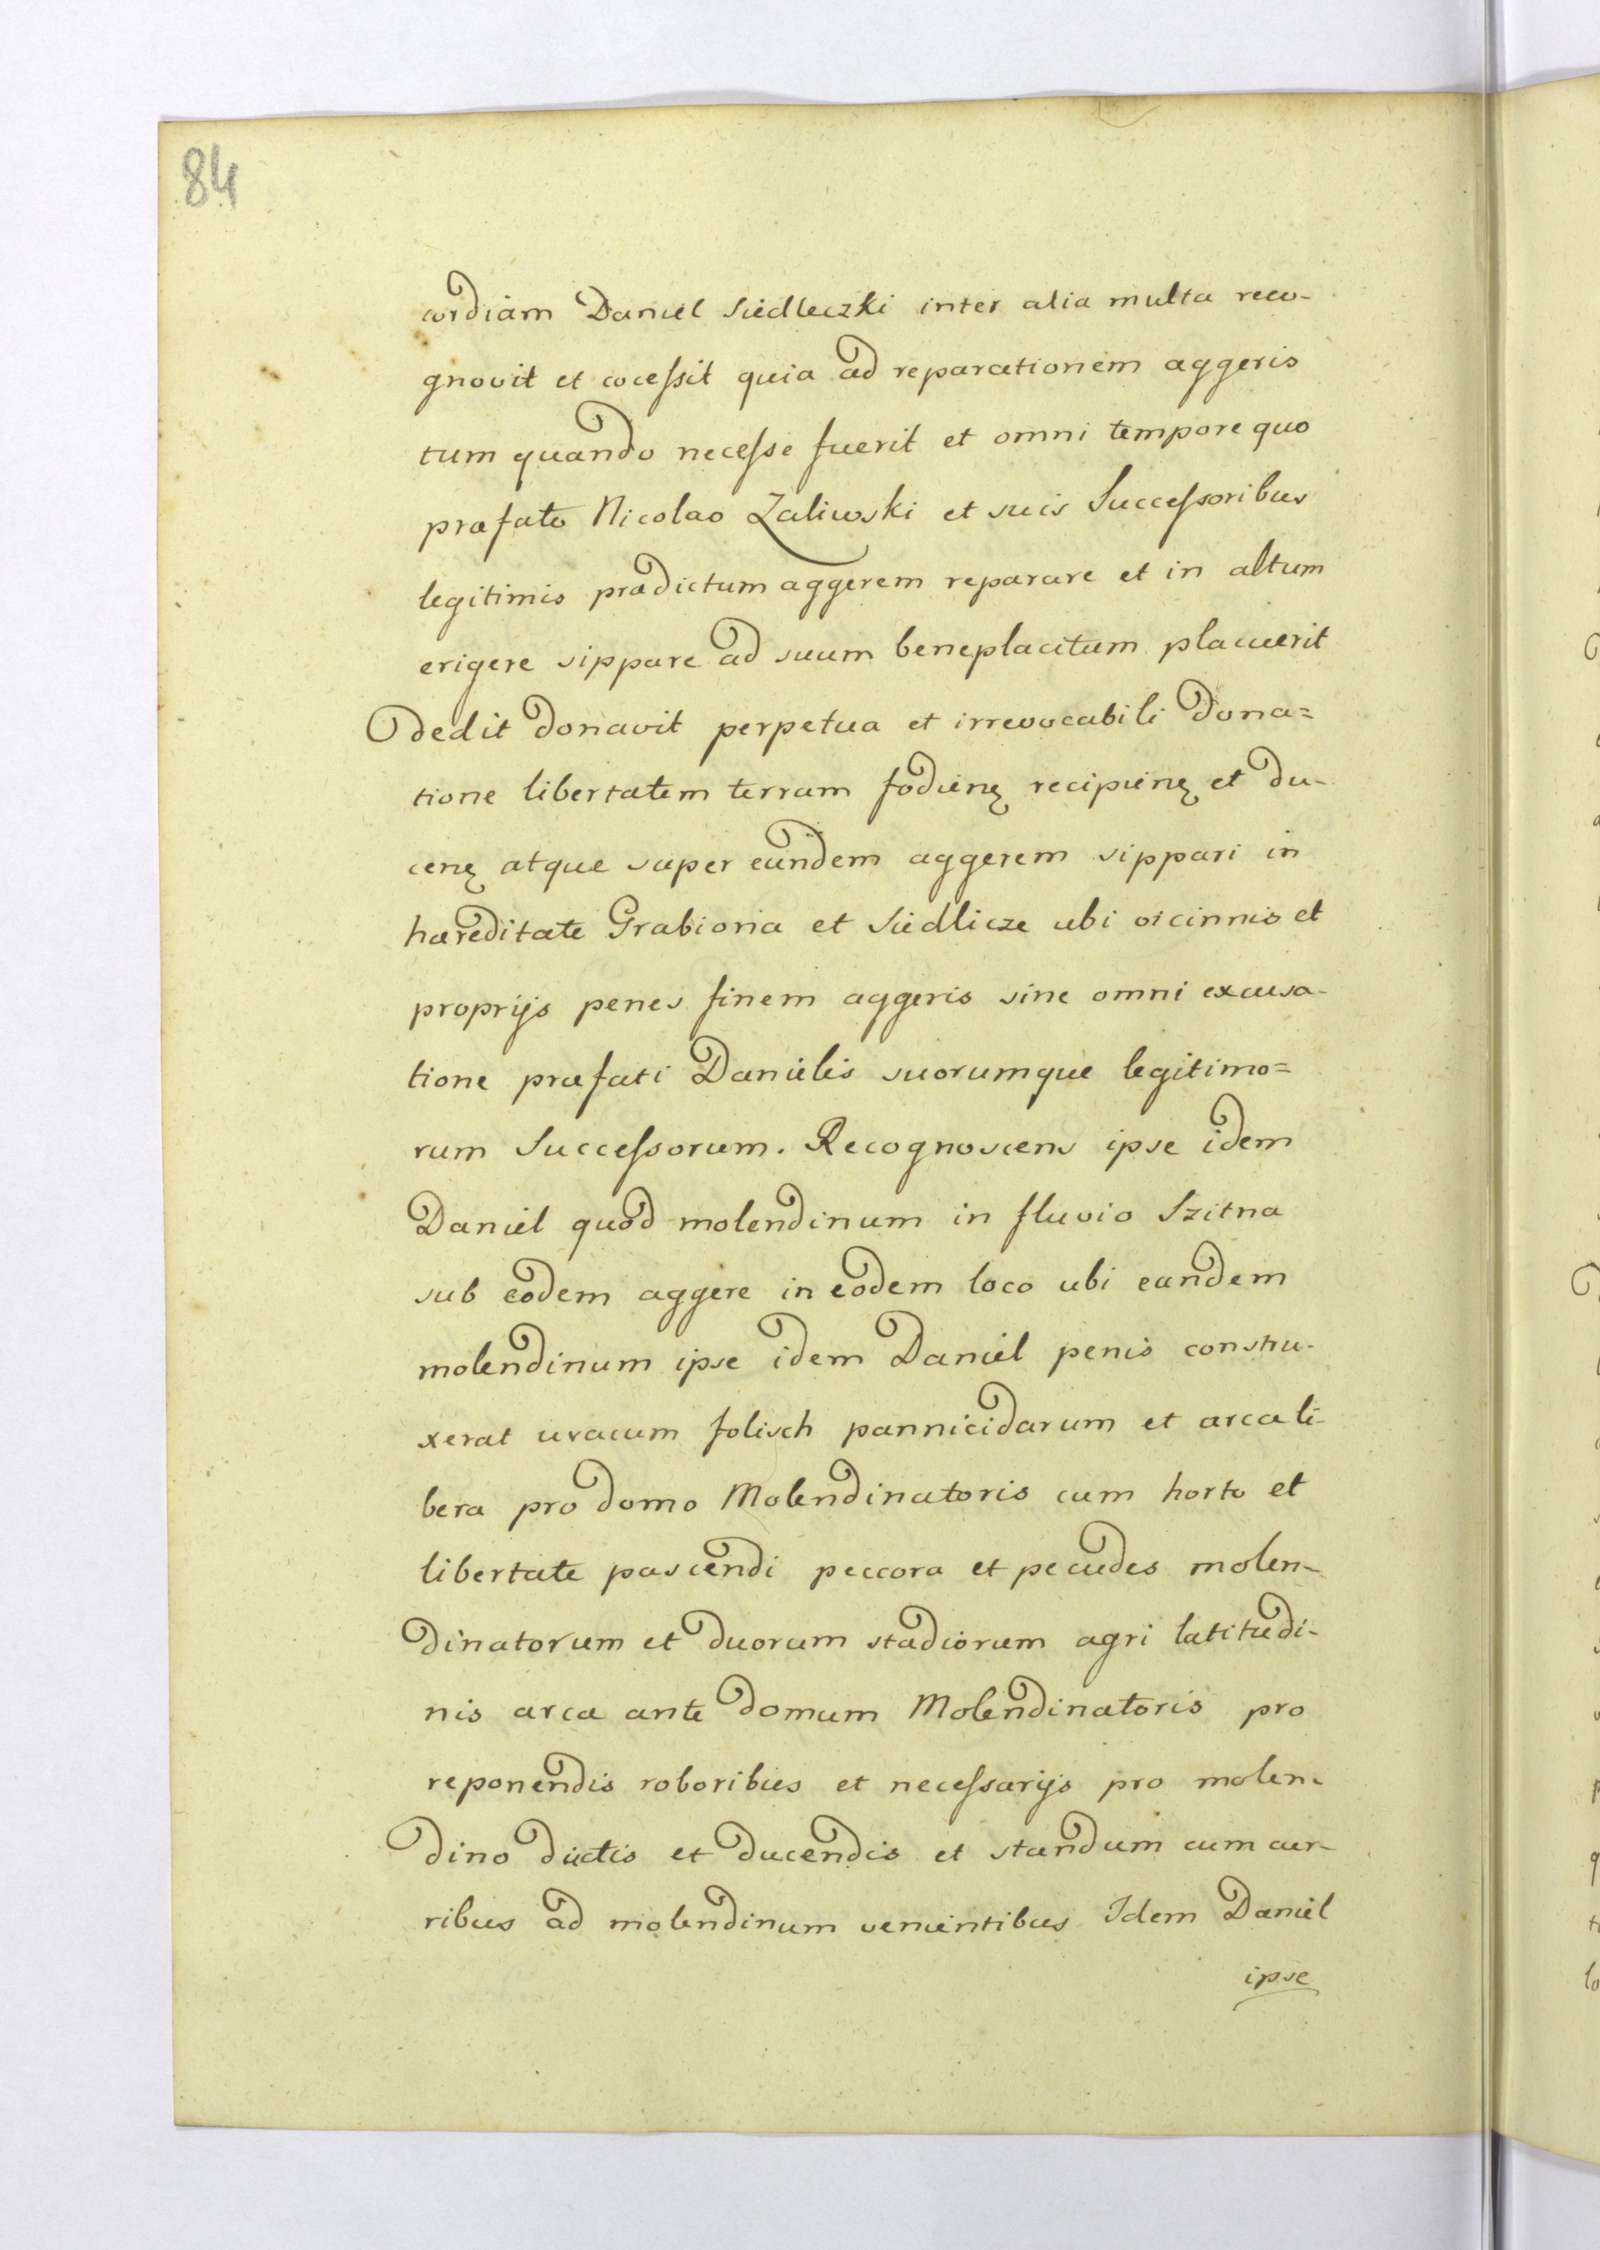 84
cordiam Daniel Siedleczki inter alia multa reco-
gnovit et cocessit quia ad reparationem aggeris
tum quando necesse fuerit et omni tempore quo
præfato Nicolao Zaliwski et suis Successoribus
legitimis prædictum aggerem reparare et in altum
erigere sippare ad suum beneplacitum placuerit
dedit donavit perpetua et irrevocabili dona=
tione libertatem terram fodienę recipienę et du-
cenę atque super eundem aggerem sippari in
hæreditate Grabiona et Siedlicze ubi vicinnis et
proprijs penes finem aggeris sine omni excusa-
tione præfati Danielis suorumque legitimo=
rum Successorum. Recognoscens ipse idem
Daniel quod molendinum in fluvio Szitna
sub eodem aggere in eodem loco ubi eundem
molendinum ipse idem Daniel penis constru-
xerat folisch pannicidarum et arca li-
bera pro domo Molendinatoris cum horto et
libertate pascendi peccora et pecudes molen-
dinatorum et duorum stadiorum agri latitudi-
nis arca ante domum Molendinatoris pro
reponendis roboribus et necessarijs pro molen-
dino dictis et ducendis et standum cum cur-
ribus ad molendinum venientibus Idem Daniel
ipse